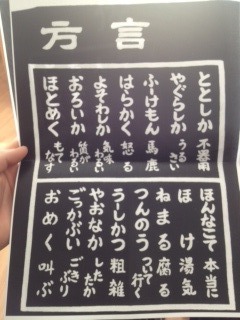 方言
ととしか 不器用
やぐらしか うるさい
ふけもん 馬鹿
はらかく 怒る
よそわしか
おろいか
ほとめく もてなす
ほんなこて 本当に
ほけ 湯気
ねまる 腐る
つんのう ついて行く
うしかつ 粗雑
やおなか したたか
ごっかぶい ごきぶり
おめく 叫ぶ